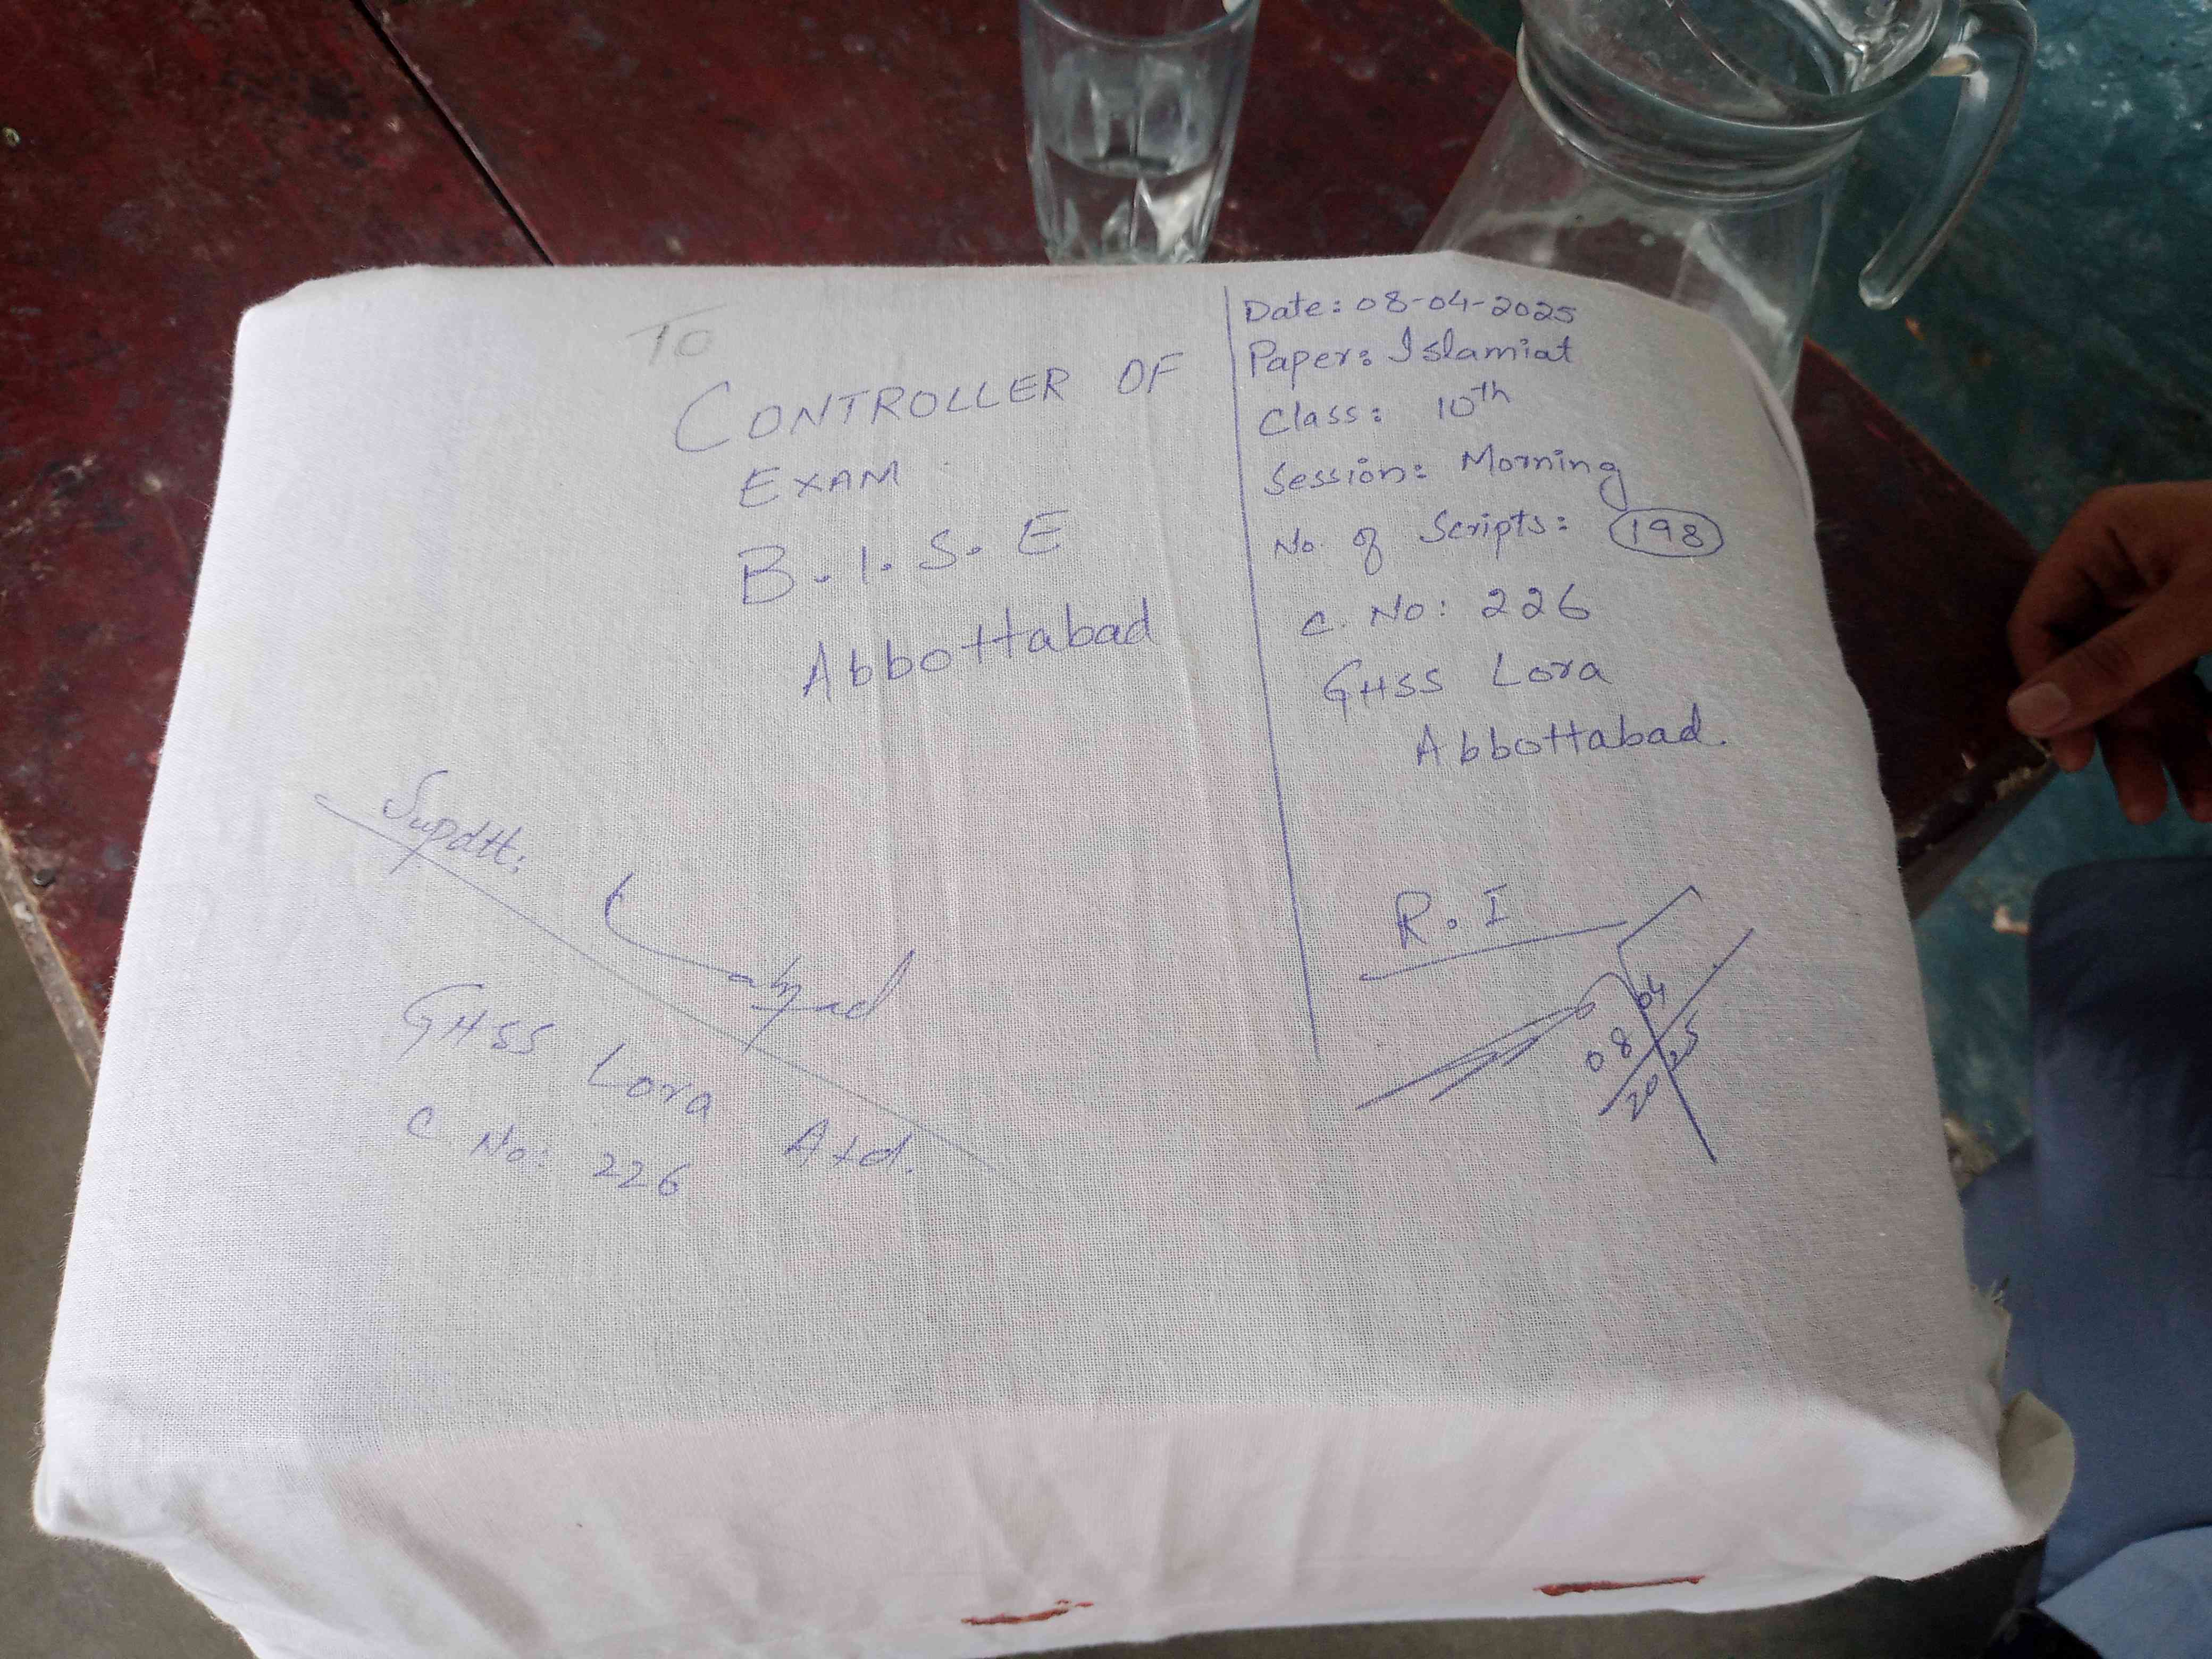 To
CONTROLLER OF
EXAM
B.I.S.E
Abbottabad
Date: 08-04-2025
Paper: Islamiat
Class: 10th
Session: Morning
No. of Scripts: 198
C. No: 226
GHSS Lora
Abbottabad.
Supdtt:
GHSS Lora Atd.
C No: 226
R.I
08 04
2025